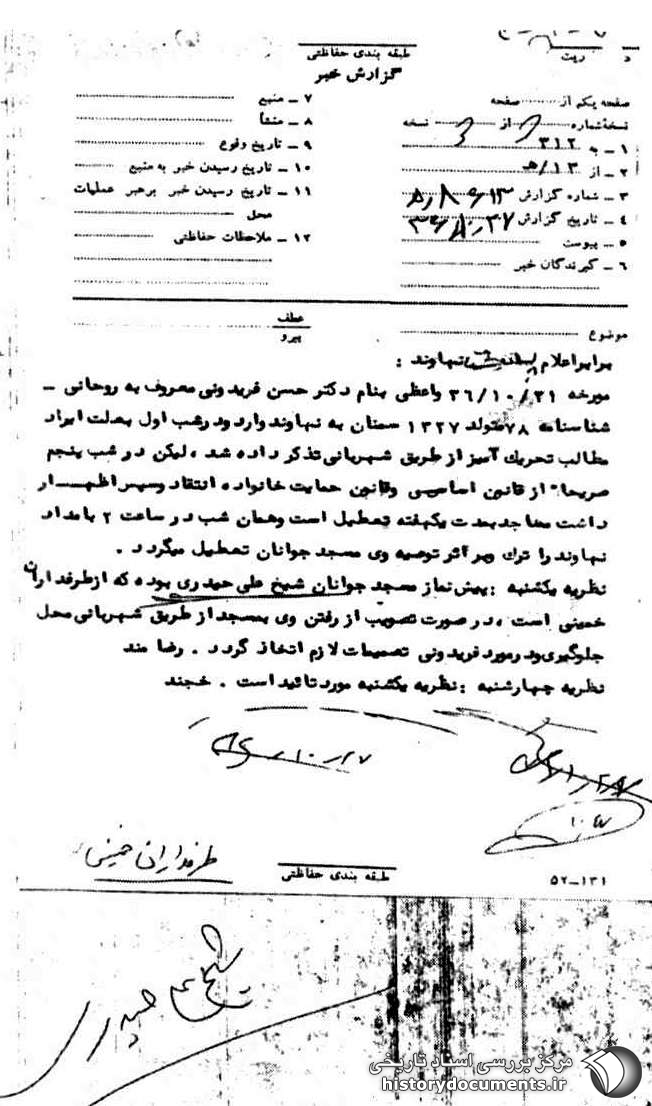 طبقه بندی حفاظتی
گزارش خبر
صفحه یکم از ........ صفحه
نسخهٔ شماره ........ از ........ نسخه
۱ ـ به ۳۱۲
۲ ـ از ۱۳/هـ
۳ ـ شماره گزارش
۴ ـ تاریخ گزارش
۵ ـ پیوست
۶ ـ گیرندگان خبر
۷ ـ منبع
۸ ـ منشأ
۹ ـ تاریخ وقوع
۱۰ ـ تاریخ رسیدن خبر به منبع
۱۱ ـ تاریخ رسیدن خبر به رهبر عملیات
محل
۱۲ ـ ملاحظات حفاظتی
موضوع
عطف
پیرو
برابر اعلام نهاوند :
مورخه ۳۶/۱۰/۲۱ واعظی بنام دکتر حسن فریدونی معروف به روحانی ـ
شناسنامه ۷۸ متولد ۱۳۲۷ سمنان به نهاوند وارد ودرشب اول بعلت ایراد
مطالب تحریک آمیز از طریق شهربانی تذکر داده شد ، لیکن در شب پنجم
صریحا" از قانون اساسی وقانون حمایت خانواده انتقاد وسپس اظهـــار
داشت مساجد بمدت یکهفته تعطیل است وهمان شب در ساعت ۲ بامداد
نهاوند را ترک وبر اثر توصیه وی مسجد جوانان تعطیل میگردد .
نظریه یکشنبه : پیش نماز مسجد جوانان شیخ علی حیدری بوده که ازطرفداران
خمینی است ، در صورت تصویب از رفتن وی بمسجد از طریق شهربانی محل
جلوگیری ودرمورد فریدونی تصمیمات لازم اتخاذ گردد . رضا مند
نظریه چهارشنبه : نظریه یکشنبه مورد تائید است . خجند
طرفداران خمینی
طبقه بندی حفاظتی
۵۲-۱۳۱
شیخ علی حیدری
مرکز بررسی اسناد تاریخی
historydocuments.ir